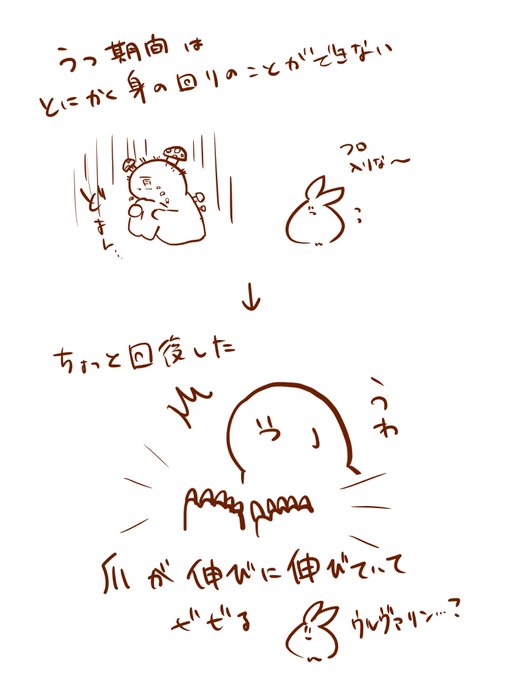 うつ期間は
とにかく身の回りのことができない
どよん…
フロ
入りな〜
ちょっと回復した
うわ
爪が伸びに伸びていて
ぜぜる
ウルヴァリン…?